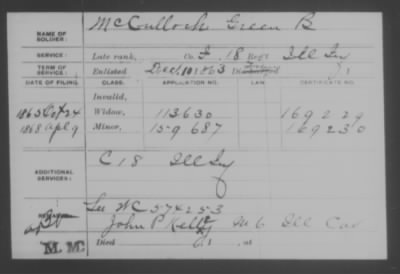 NAME OF SOLDIER: McCullock Green B
SERVICE: Late rank, Co. I 18 Reg't Ill Inf
TERM OF SERVICE: Enlisted Dec 10 1863
DATE OF FILING. CLASS. APPLICATION NO. LAW. CERTIFICATE NO.
Invalid,
1865 Oct 24 Widow, 113630 169229
1868 Apl 9 Minor, 159687 169230
ADDITIONAL SERVICES: C 18 Ill Inf
REMARKS: See WC 574253
John P M 6 Ill Cav
Died , at
M. M.